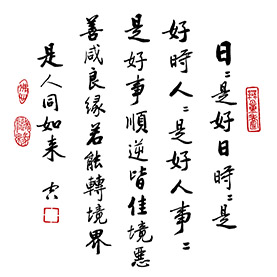 日日是好日時時是
好時人人是好人事事
是好事順逆皆佳境惡
善咸良緣若能轉境界
是人同如来